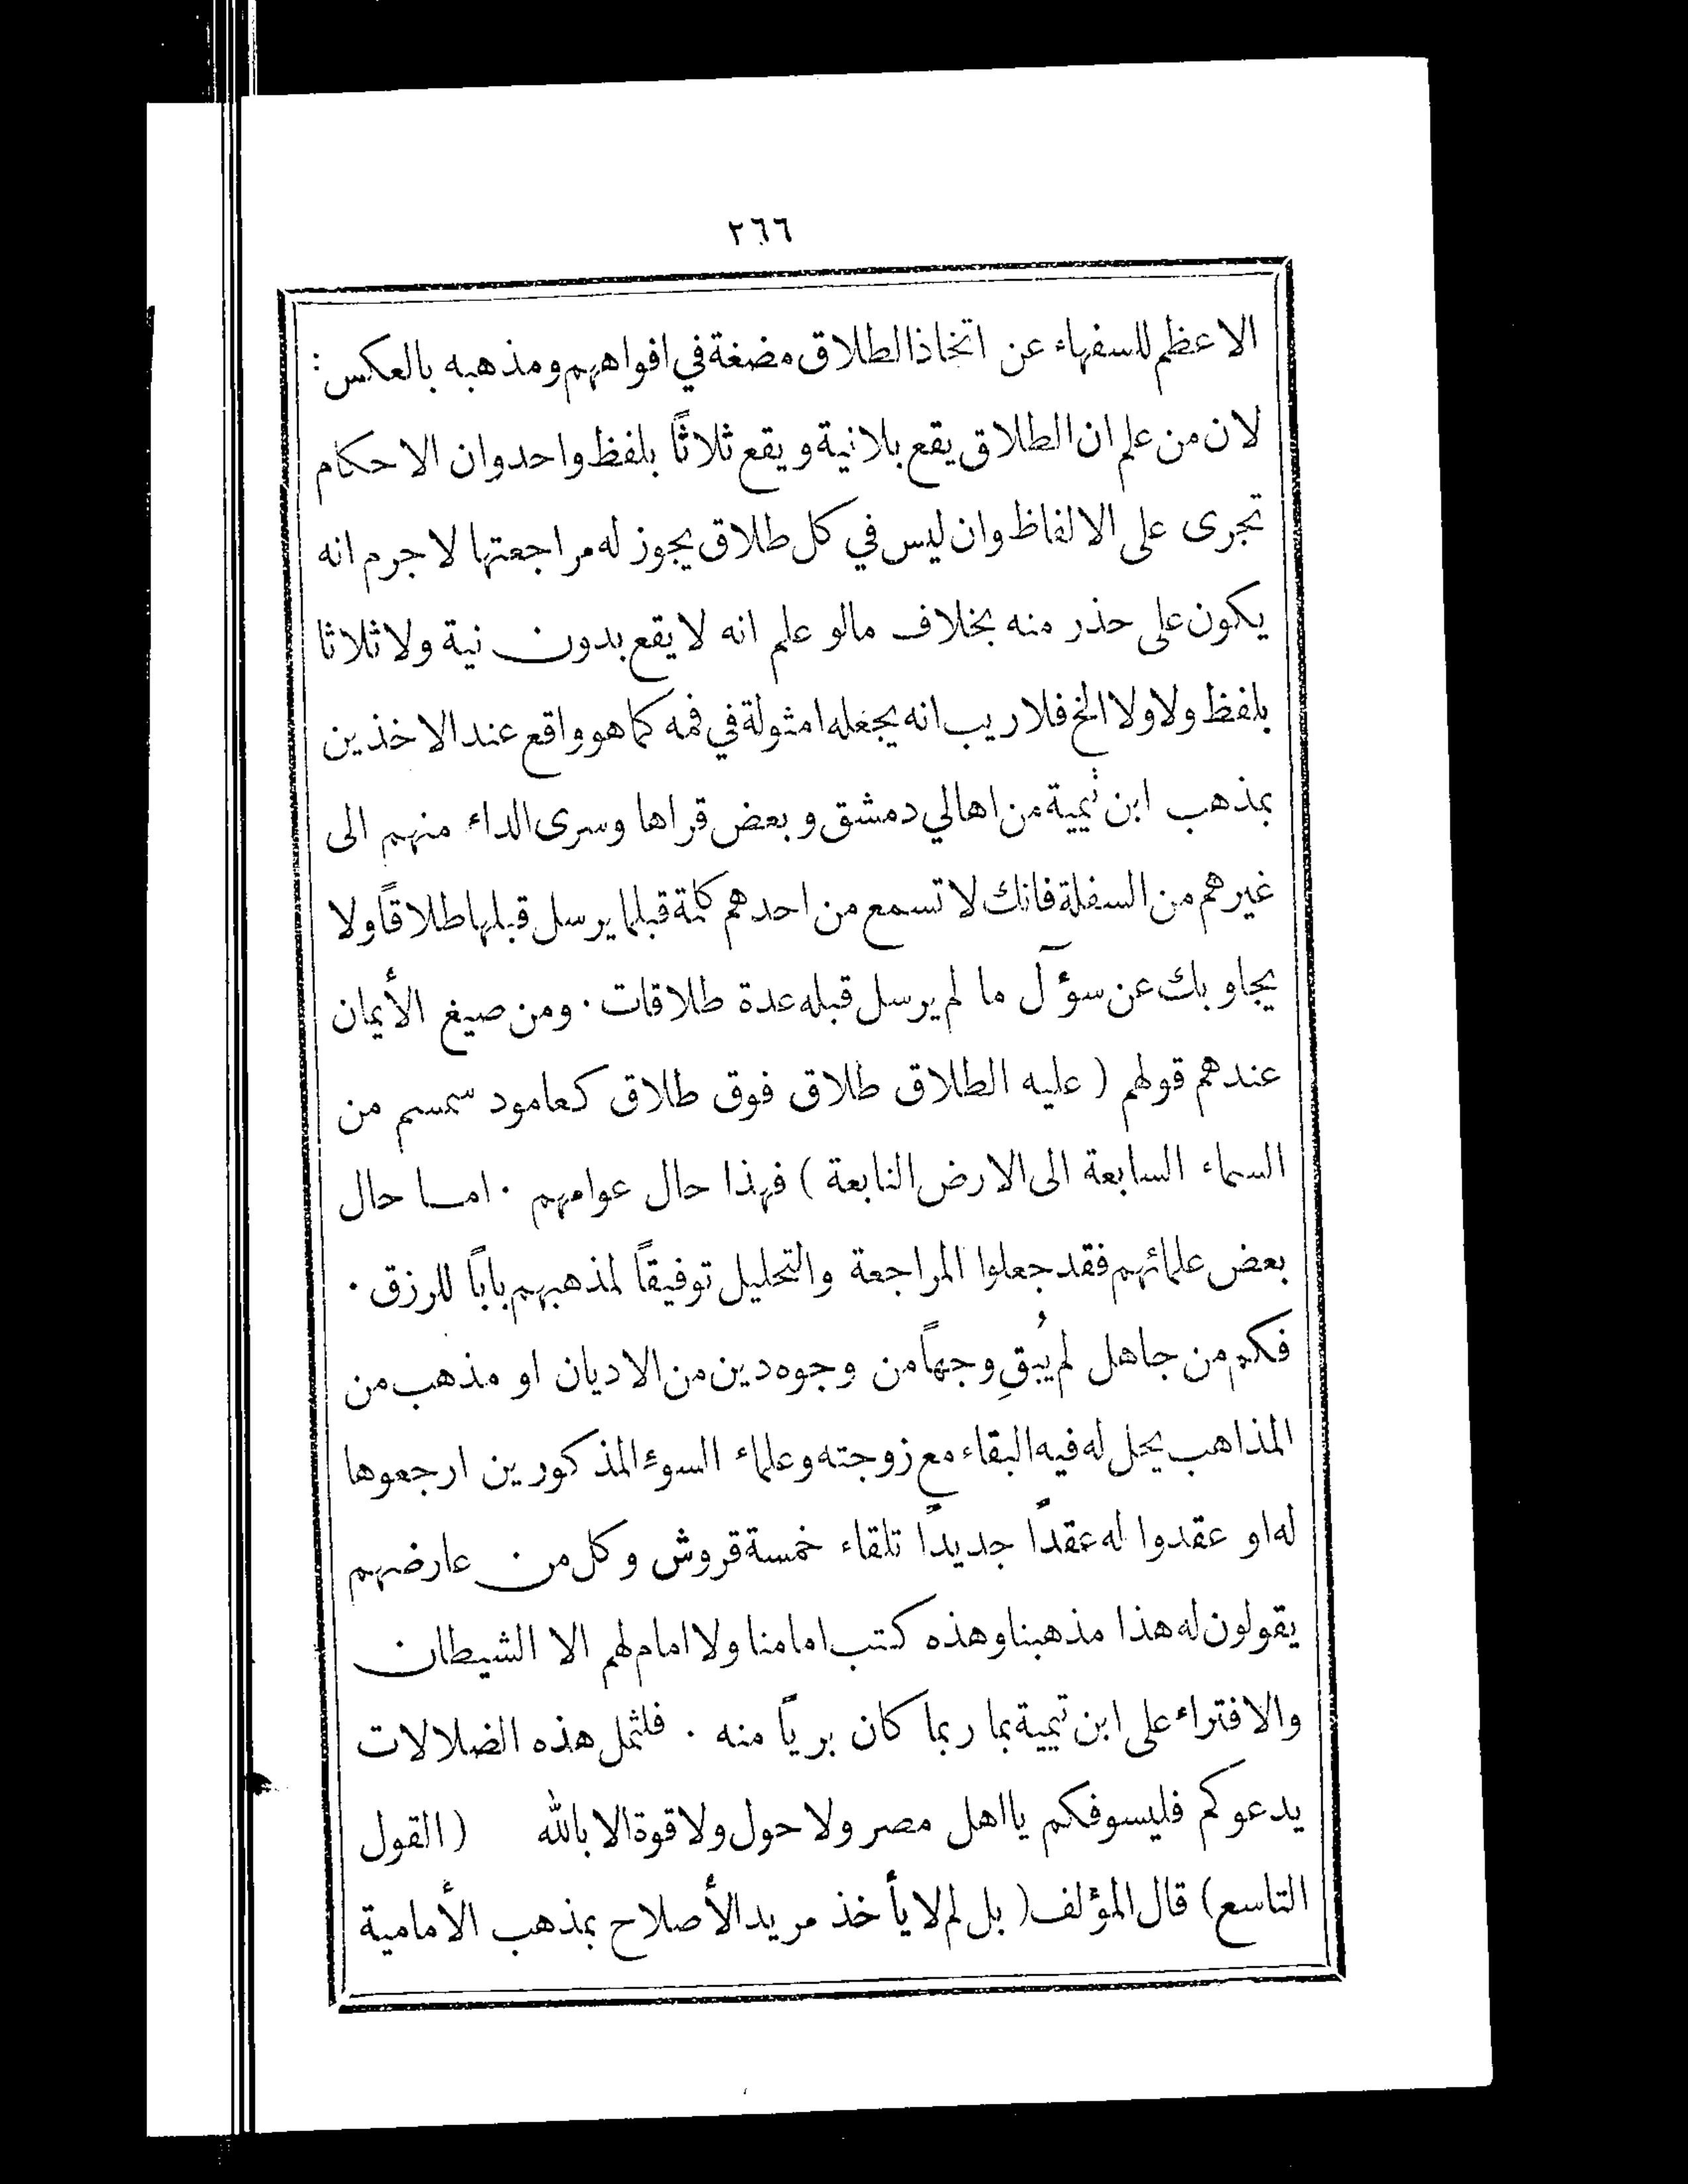 ٢٦٦
الاعظم للسفهاء عن اتخاذ الطلاق مضغة في افواههم ومذهبه بالعكس :
لان من علم ان الطلاق يقع بلا نية ويقع ثلاثًا بلفظ واحد وان الاحكام
تجرى على الالفاظ وان ليس في كل طلاق يجوز له مراجعتها لا جرم انه
يكون على حذر منه بخلاف مالو علم انه لا يقع بدون نية ولا ثلاثا
بلفظ ولا ولا الخ فلا ريب انه يجعله امثولة في فمه كما هو واقع عند الاخذين
بمذهب ابن تيمية من اهالي دمشق و بعض قراها وسرى الداء منهم الى
غيرهم من السفلة فانك لا تسمع من احدهم كلمة قبلما يرسل قبلها طلاقًا ولا
يجاوبك عن سؤآل ما لم يرسل قبله عدة طلاقات . ومن صيغ الأيمان
عندهم قولهم ( عليه الطلاق طلاق فوق طلاق كعامود سمسم من
السماء السابعة الى الارض النابعة ) فهذا حال عوامهم . اما حال
بعض علمائهم فقد جعلوا المراجعة والتحليل توفيقًا لمذهبهم بابًا للرزق .
فكم من جاهل لم يُبقِ وجهًا من وجوه دين من الاديان او مذهب من
المذاهب يحل له فيه البقاء مع زوجته وعلماء السوء المذكورين ارجعوها
له او عقدوا له عقدًا جديدًا تلقاء خمسة قروش وكل من عارضهم
يقولون له هذا مذهبنا وهذه كتب امامنا ولا امام لهم الا الشيطان
والافتراء على ابن تيمية بما ربما كان بريًا منه . فلمثل هذه الضلالات
يدعوكم فليسوفكم يا اهل مصر ولا حول ولا قوة الا بالله (القول
التاسع) قال المؤلف ( بل لم لا يأخذ مريد الأصلاح بمذهب الأمامية